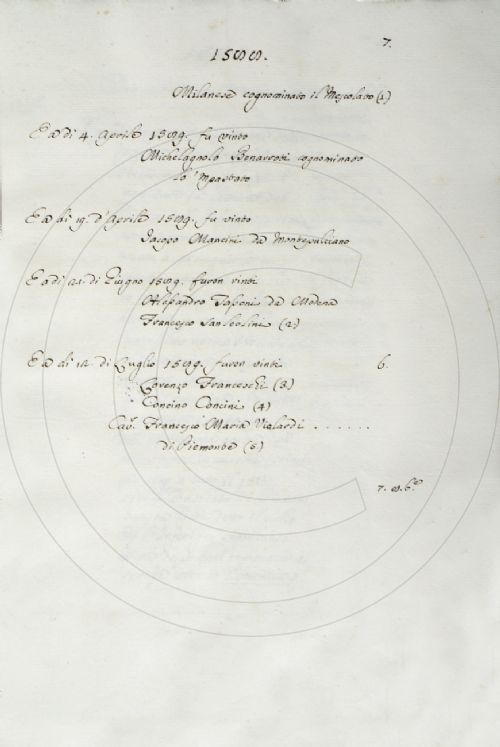 7.
1588.
Milanese cognominato il Mescolato (1)
E a di 4. Aprile 1589. fu vinto
Michelagnolo Bonarroti cognominato
lo 'Mpastato
E a di 19. d'Aprile 1589. fu vinto
Jacopo Mancini da Montepulciano
E a di 21. di Giugno 1589. furon vinti
Alessandro Tassoni da Modena
Francesco Sanleolini (2)
E a di 12. di Luglio 1589. furon vinti 6.
Lorenzo Franceschi (3)
Concino Concini (4)
Cav. Francesco Maria Vialardi . . . . . .
di Piemonte (5)
7. e 6.